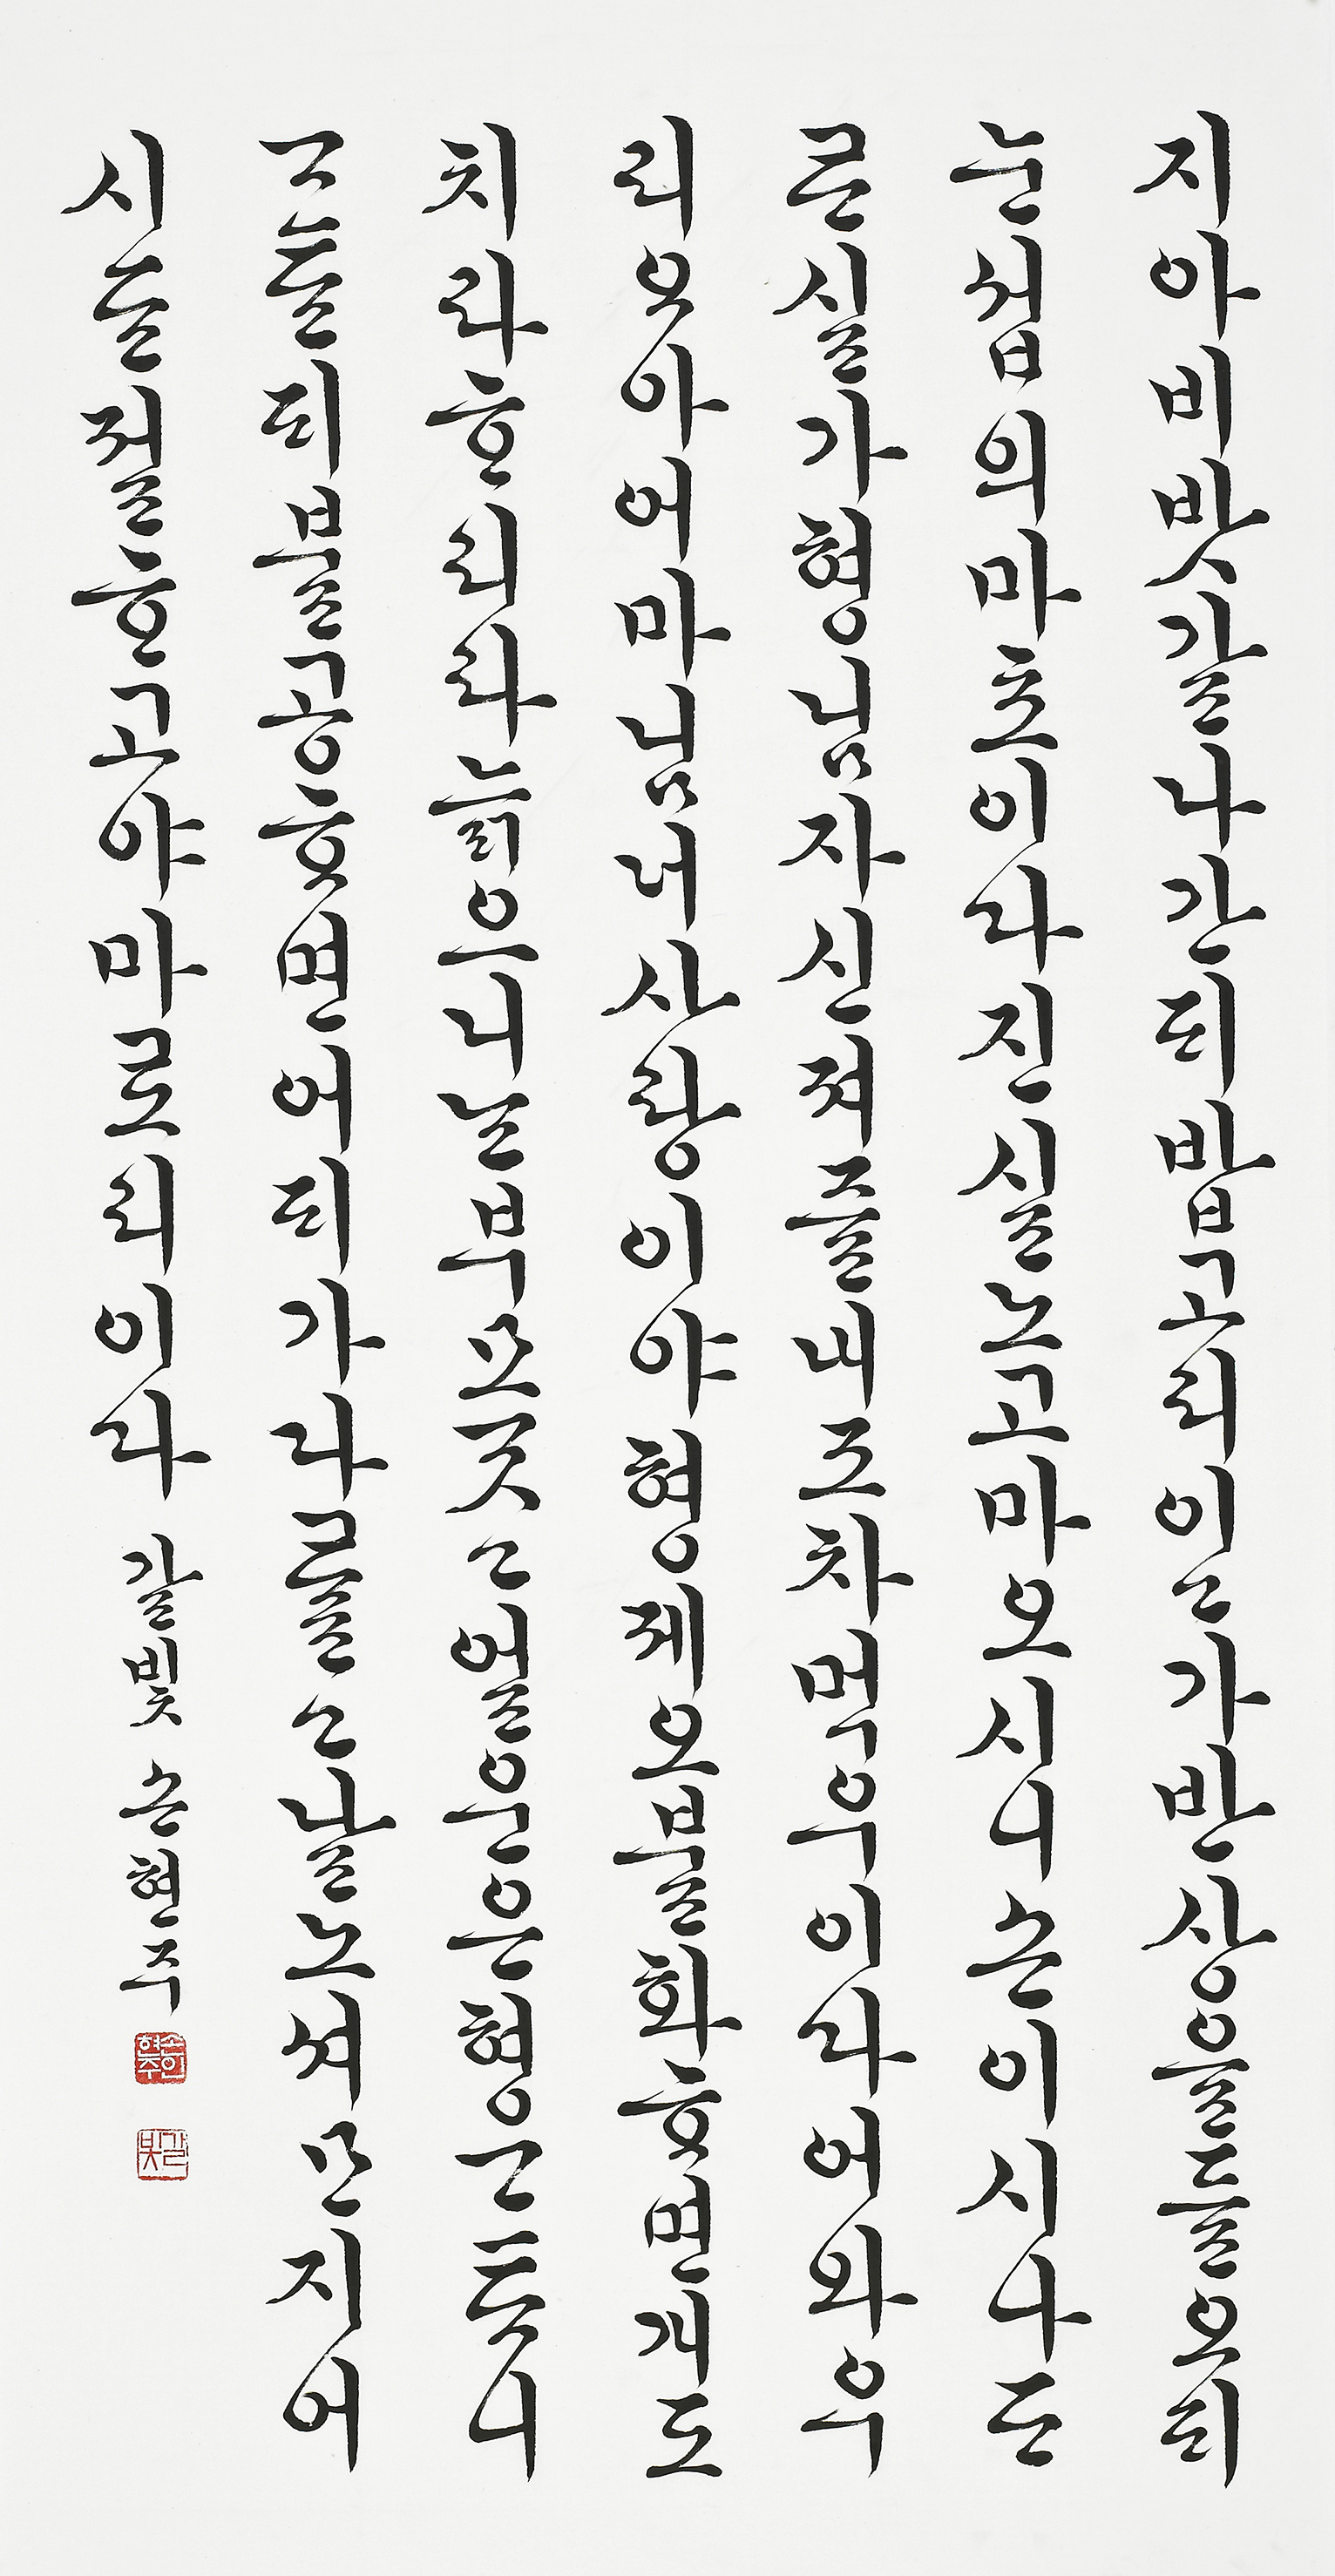 지아비밧갈나간ᄃᆡ밥고리이고가반상을들오ᄃᆡ
눈섭의마초이다진실노고마오시니손이시나ᄃᆞ
ᄅᆞ실가형님자신져즐내조차먹우이다어와우
리오아어마님너사랑이야형제오불화ᄒᆞ면개도
치라ᄒᆞ리라늙으니ᄂᆞᆫ부모ᄀᆞᆺ고얼운은형ᄀᆞᄐᆞ니
ᄀᆞᄐᆞᆫᄃᆡ불공ᄒᆞ면어ᄃᆡ가다ᄅᆞᆯ고날노셔ᄆᆞᆮ지어
시ᄃᆞᆫ절ᄒᆞ고야마로리이다 갈빛 손현주